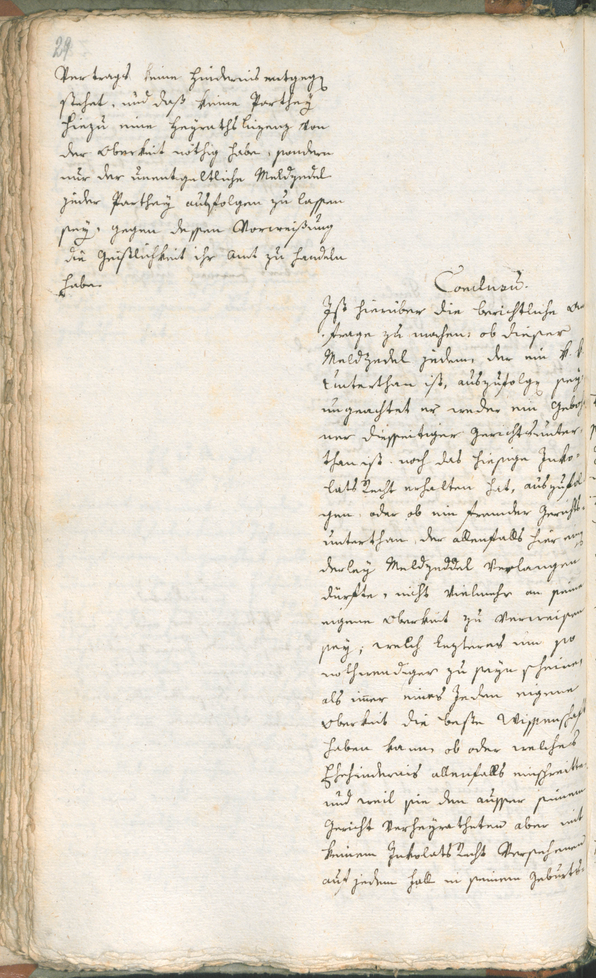 29
Vertrags keine Hindernis entgeg
stehet, und daß keine Parthey
hiezu eine Heyrathslizenz von
der Obrigkeit nöthig habe, sondern
nur der unentgeltliche Meldzedel
jeder Parthey ausfolgen zu lassen
sey, gegen dessen Vorweißung
die Geistlichkeit ihr Amt zu handeln
habe.
Conclusum.
Ist hierüber die berichtliche An
frage zu machen: ob dieser
Meldzedel jedem, der ein k. k.
Unterthan ist, auszufolgen sey
ungeachtet er weder ein Gebor
ner diesseitiger Gerichtsunter
than ist, noch das hiesige Inko
lats Recht erhalten hat, auszufol
gen, oder ob ein fremder Gerichts
unterthan, der allenfalls hier ein
derley Meldzeddel verlangen
dürfte, nicht vielmehr an seine
eigene Obrigkeit zu verweisen
sey; welch lezteres um so
nothwendiger zu seyn scheine,
als immer eines Jeden eigene
Obrigkeit die beste Wissenschaft
haben kann, ob oder welches
Ehehindernis allenfalls einschreitte
und weil sie den ausser seinem
Gericht verheyratheten aber mit
keinem Inkolats Recht versehenen
auf jedem Fall in seinem Geburts-